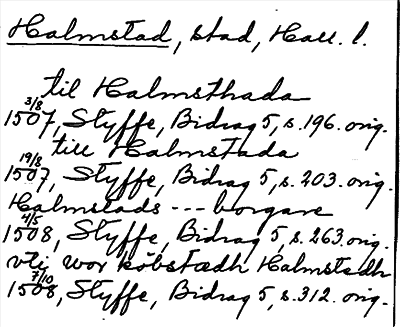 Halmstad, stad, Hall. l.
til Halmsthada
3/8
1507, Styffe, Bidrag 5, s. 196. orig.
till Halmstada
19/8
1507, Styffe, Bidrag 5, s. 203. orig.
Halmstads --- borgare
4/5
1508, Styffe, Bidrag 5, s. 263. orig.
vtj wor købstædh Halmstadh
7/10
1508, Styffe, Bidrag 5, s. 312. orig.